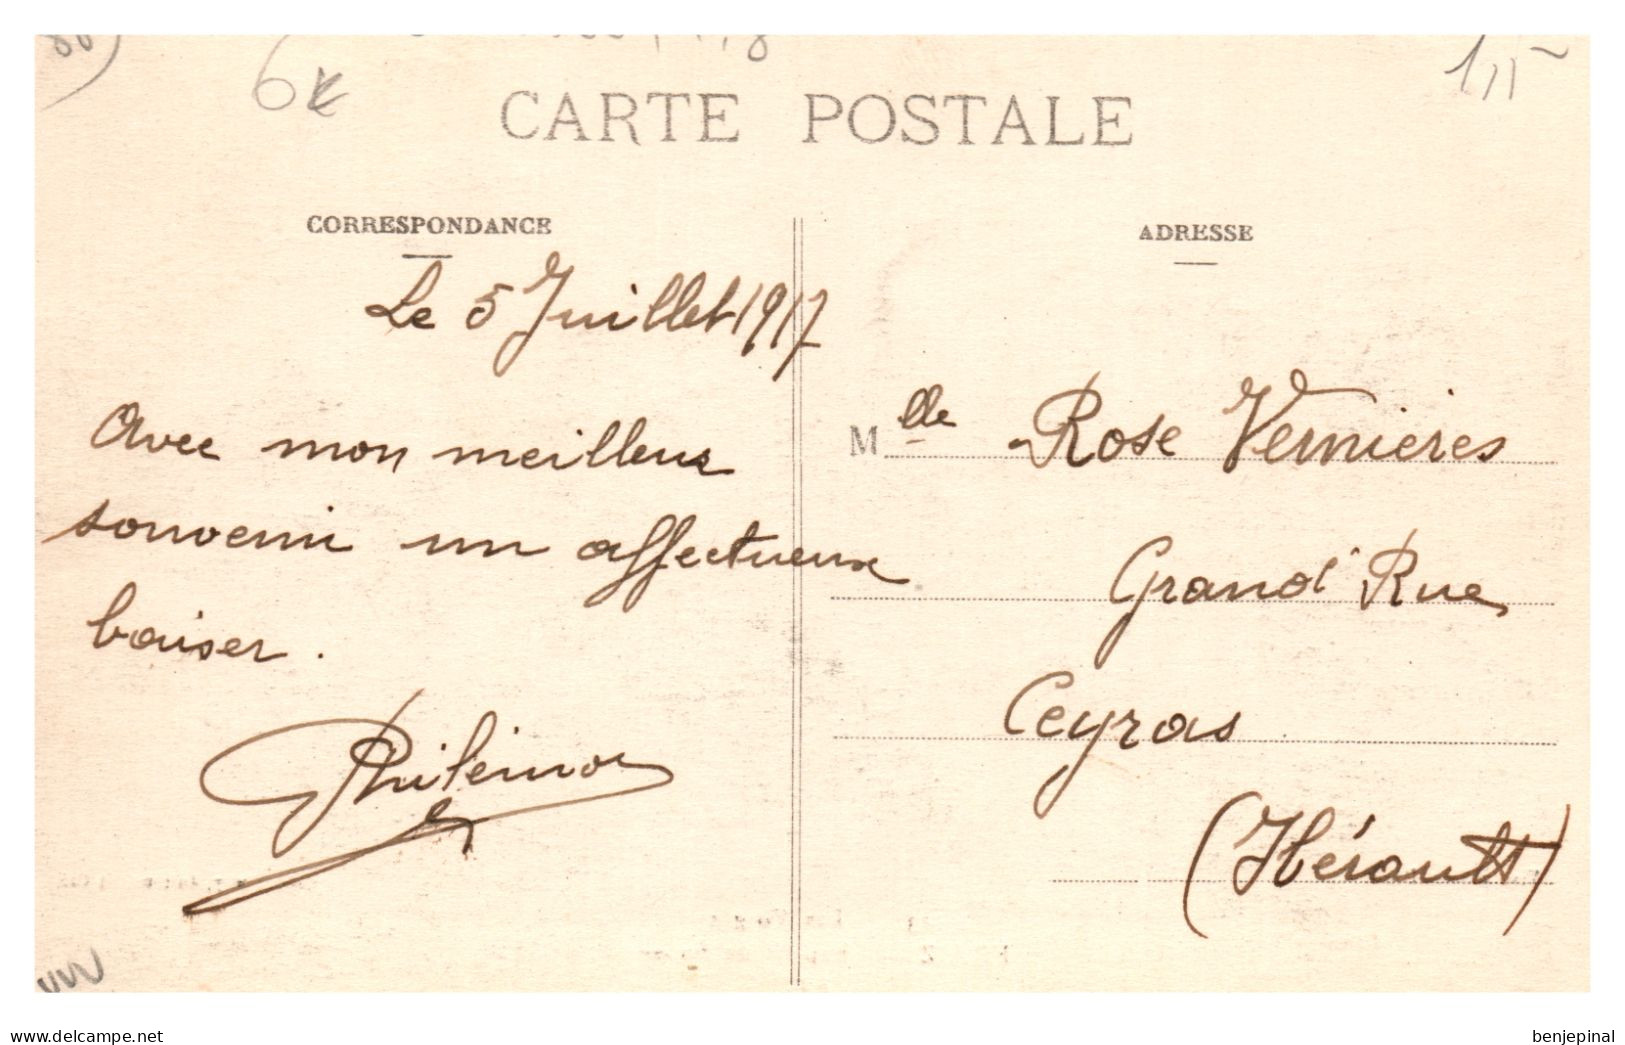 6€
CARTE POSTALE
CORRESPONDANCE
Le 5 Juillet 1917
Avec mon meilleur
souvenir un affectueux
baiser.
Philémon
ADRESSE
Mlle Rose Vernieres
Grand' Rue
Ceyras
(Hérault)
www.delcampe.net
benjepinal